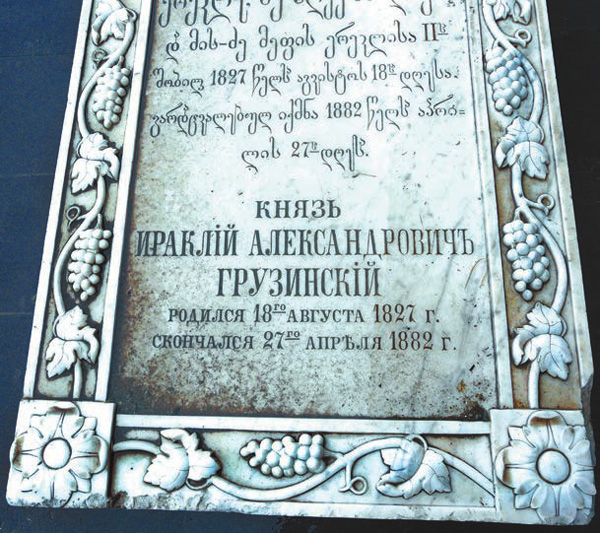 დ მის-ძე მეფის ერეკლისა IIსა
შობილ 1827 წელს აგვისტოს 18ს დღესა.
გარდცვალებულ იქმნა 1882 წელს აპრი-
ლის 27ს დღეს.
КНЯЗЬ
ИРАКЛІЙ АЛЕКСАНДРОВИЧЪ
ГРУЗИНСКІЙ
РОДИЛСЯ 18го АВГУСТА 1827 г.
СКОНЧАЛСЯ 27го АПРѢЛЯ 1882 г.